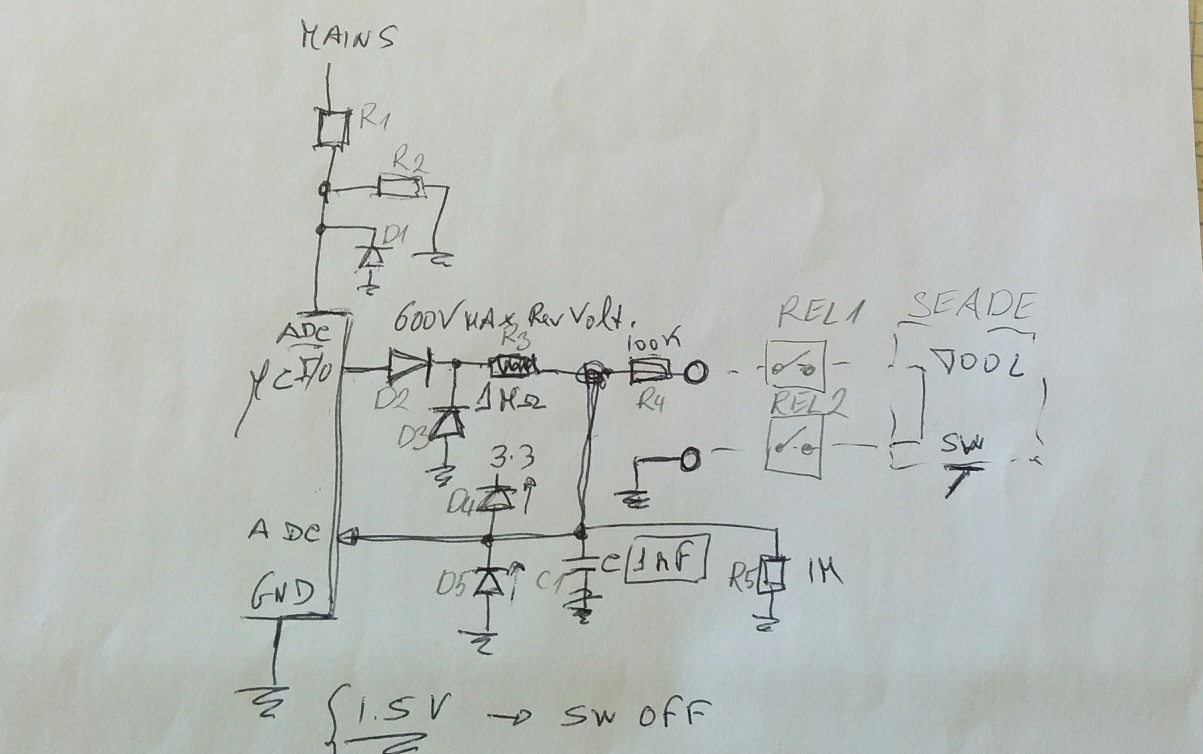 MAINS
R1
R2
D1
600V MAX Rev Volt.
ADC
I/O
μC
D2
R3
1MΩ
D3
100K
R4
REL1
REL2
TOOL
SW
3.3
D4
ADC
D5
C1
C 1nF
R5
1M
GND
1.5V → SW OFF